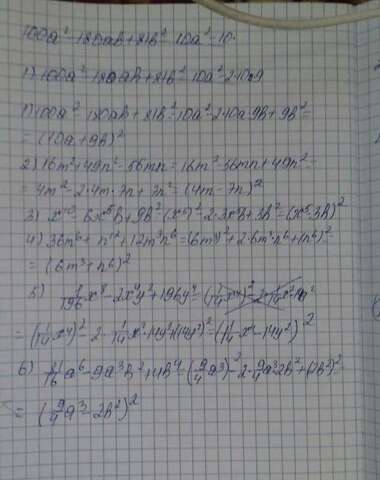 100a² - 180ab + 81b² = 10a² - 10·
1) 100a² - 180ab + 81b² = 10a² - 2·10·9
1) 100a² - 180ab + 81b² = 10a² - 2·10a·9b + 9b² =
= (10a + 9b)²
2) 16m² + 49n² - 56mn = 16m² - 56mn + 49n² =
= 4m² - 2·4m·7n + 7n² = (4m - 7n)²
3) x¹⁰ - 6x⁵b + 9b² = (x⁵)² - 2·3x⁵b + 3b² = (x⁵ - 3b)²
4) 36m⁶ + n¹² + 12m³n⁶ = (6m³)² + 2·6m³n⁶ + (n⁶)² =
= (6m³ + n⁶)²
5) 1/196 x⁸ - 2x⁴y² + 196y⁴ =
= (1/14 x⁴)² - 2·1/14 x⁴·14y² + (14y²)² = (1/14 x⁴ - 14y²)²
6) 81/16 a⁶ - 9a³b² + 4b⁴ = (9/4 a³)² - 2·9/4 a³·2b² + (2b²)² =
= (9/4 a³ - 2b²)²